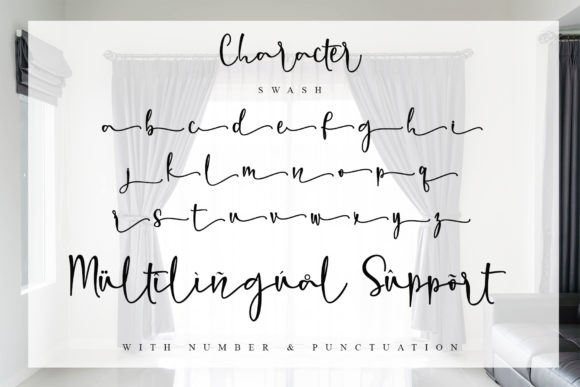 Character
SWASH
a b c d e f g h i
j k l m n o p q
r s t u v w x y z
Mültîlìñgúål Sûppòrt
WITH NUMBER & PUNCTUATION